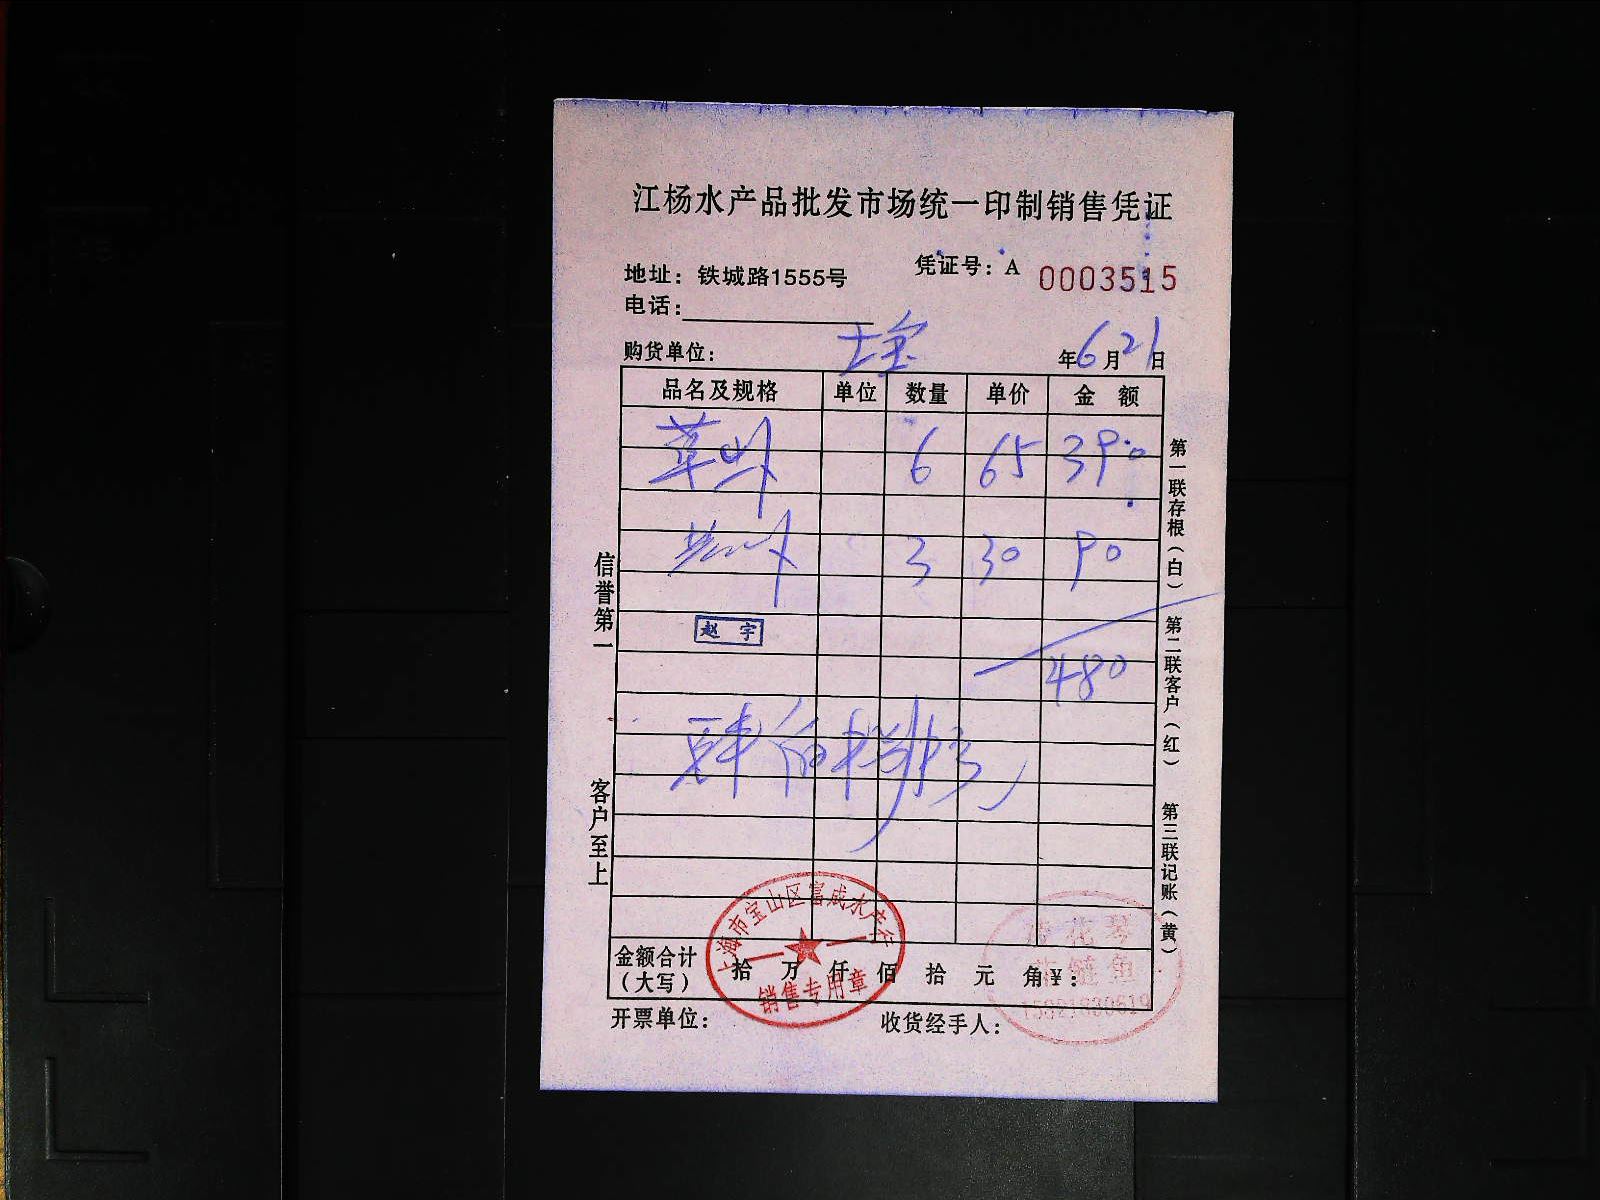 江杨水产品批发市场统一印制销售凭证
地址：铁城路1555号
凭证号：A 0003515
电话：
购货单位：
年6月21日
品名及规格 单位 数量 单价 金额
草 6 65 390
3 30 90
赵宇
480
肆佰捌拾元
信誉第一
客户至上
第一联存根（白） 第二联客户（红） 第三联记账（黄）
上海市宝山区富成水产行
销售专用章
金额合计（大写） 拾 万 仟 佰 拾 元 角 ¥：
花鲢鱼
开票单位：
收货经手人：